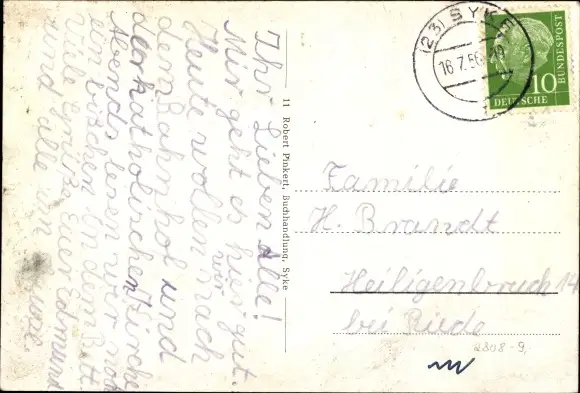 Ihr Lieben Alle!
Mir geht es hier gut.
Heute wollen wir nach
dem Bahnhof und
der katholischen Kirche
Abends lesen wir noch
ein bischen in dem Bett.
Viele Grüße Euer Edmund
und alle von uns.
11 Robert Pinkert, Buchhandlung, Syke
(23) SYKE
16.7.56
10
DEUTSCHE
BUNDESPOST
Familie
H. Brandt
Heiligenbruch 14
bei Riede
2808-9,